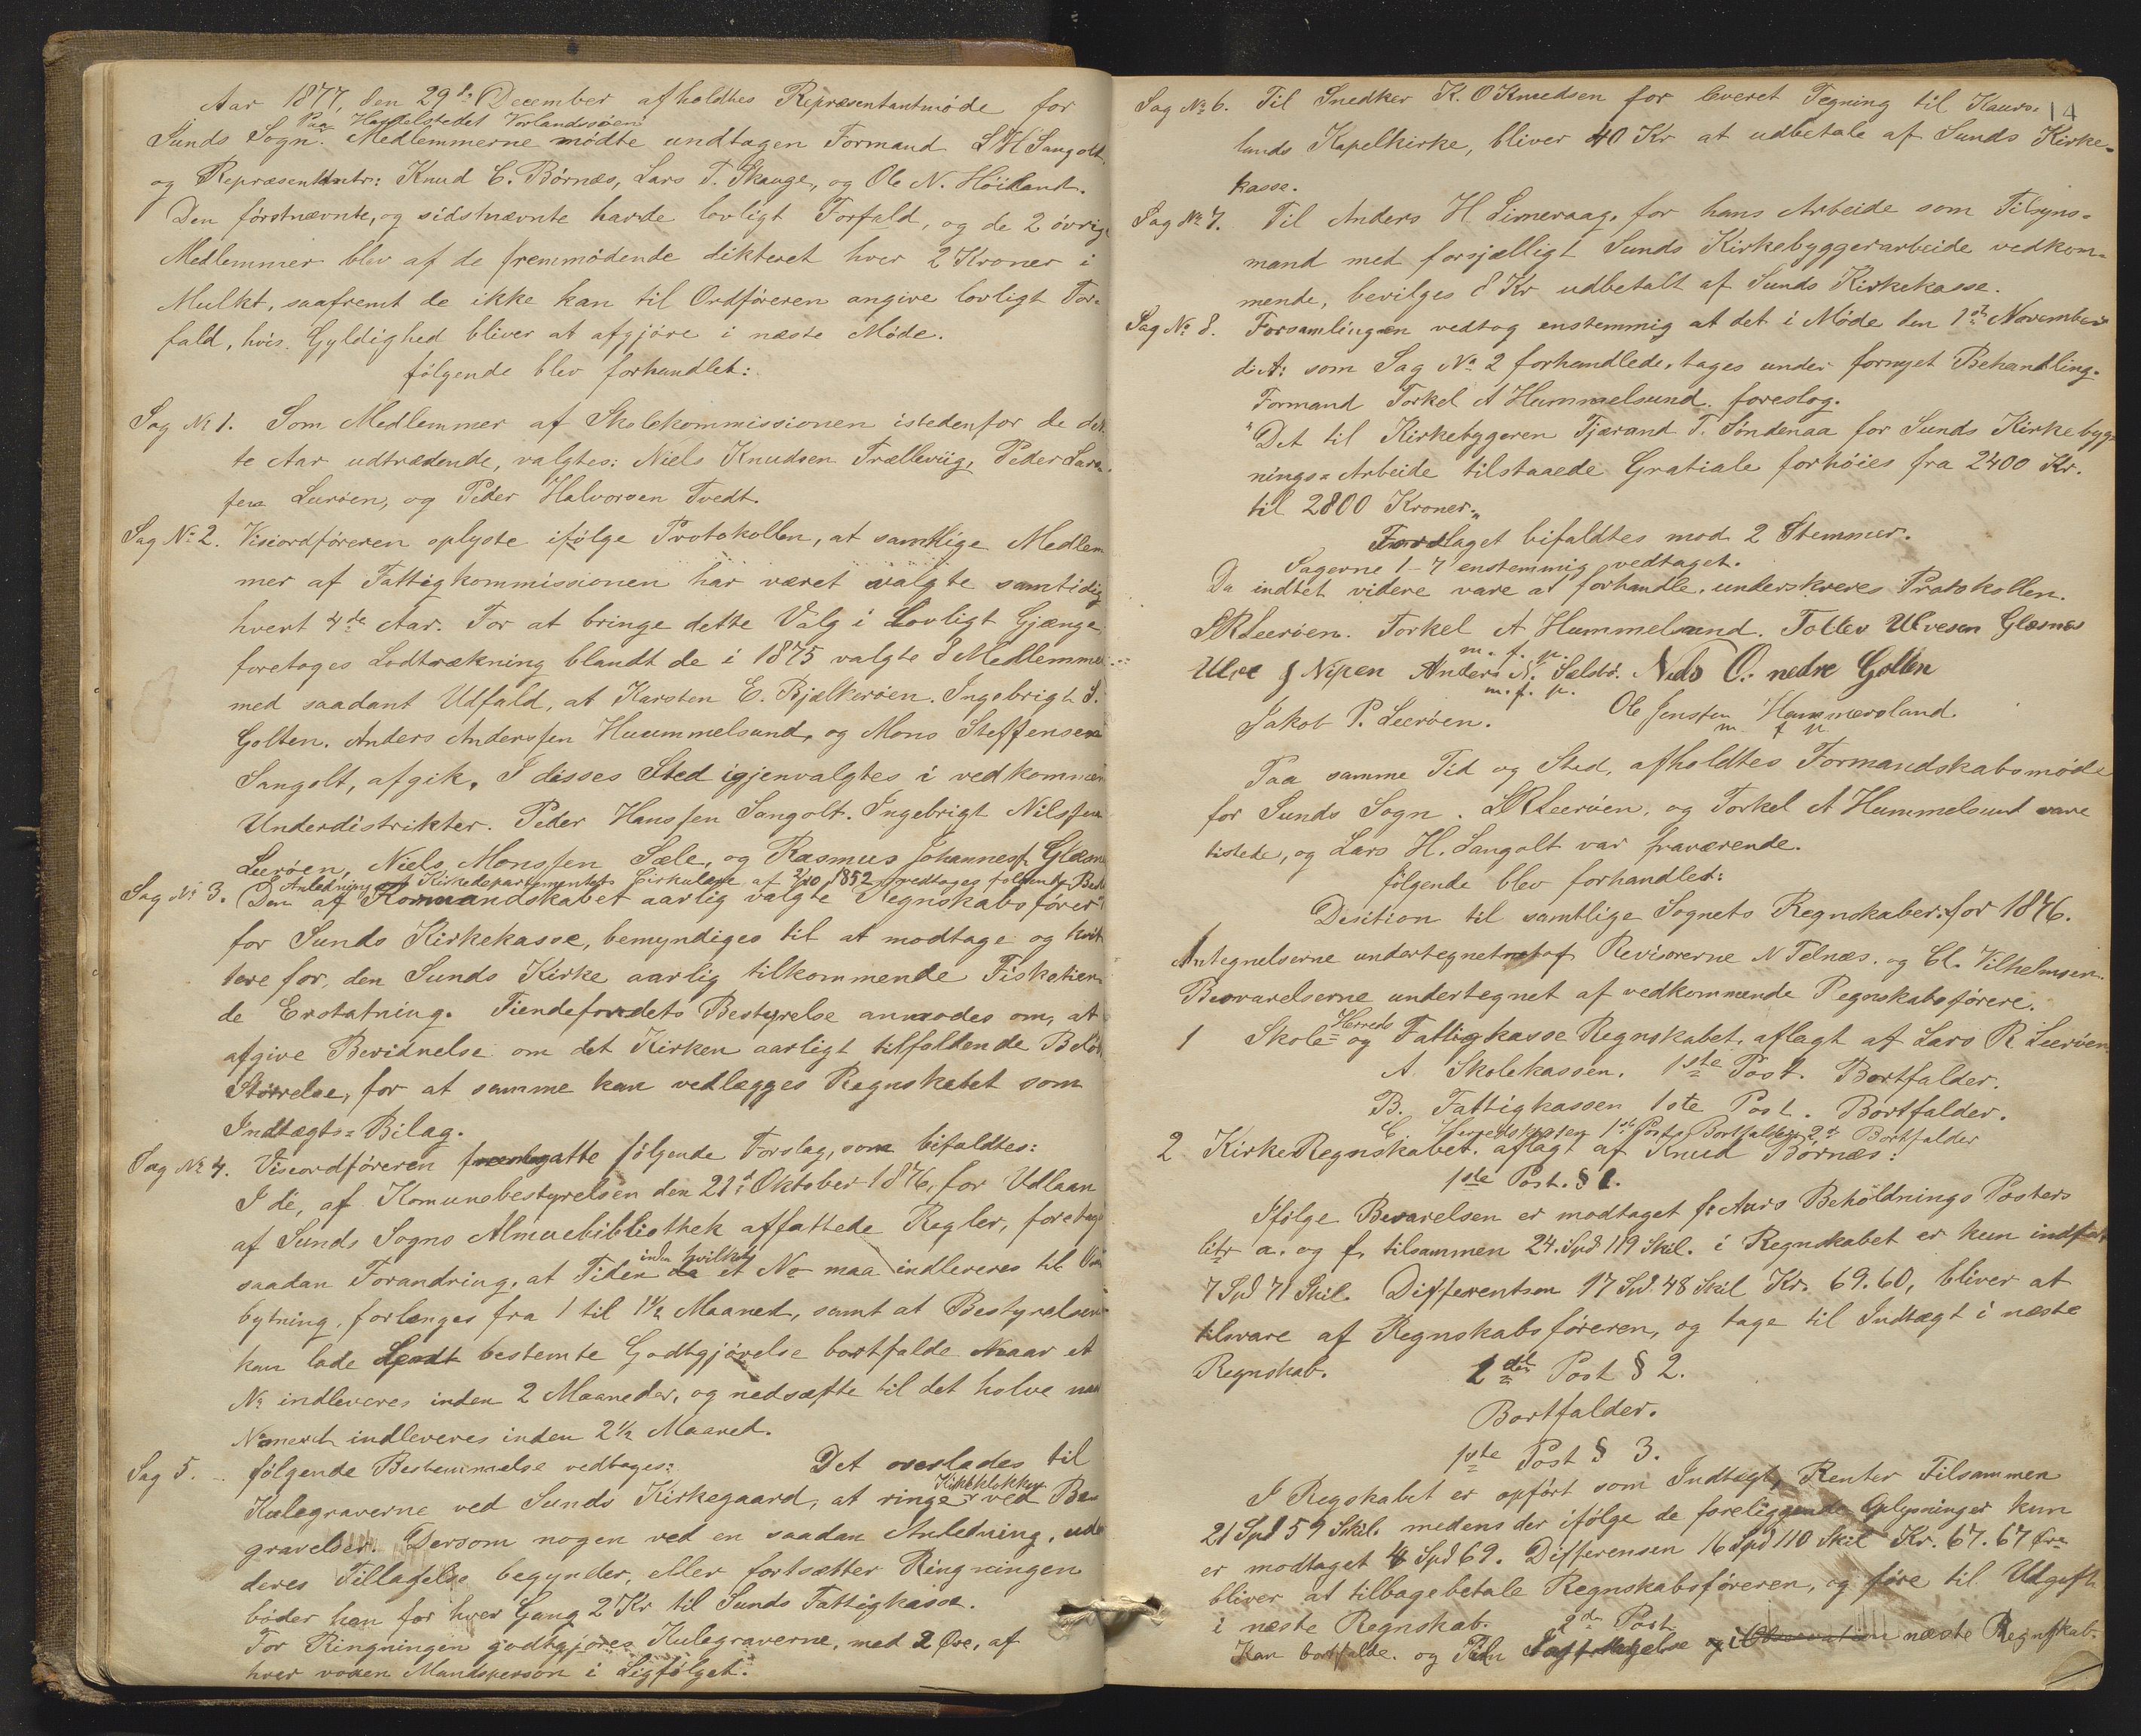 Aar 1877, den 29de December afholdtes Repræsentantmöde for
Paa Handelstedet Vorlandsöen
Sunds Sogn. Medlemmerne mödte undtagen Formand L H Sangolt
og Repræsentantr: Knud C. Börnæs, Lars T. Skauge, og Ole N. Höiland.
Den förstnævnte, og sidstnævnte havde lovligt Forfald, og de 2 övrige
Medlemmer blev af de fremmödende dikteret hver 2 Kroner i
Mulkt, saafremt de ikke kan til Ordföreren angive lovligt For-
fald, hvis Gyldighed bliver at afgjöre i næste Möde.
fölgende blev forhandlet:
Sag No 1. Som Medlemmer af Skolekommissionen istedenfor de det-
te Aar udtrædende, valgtes: Niels Knudsen Trælleviig, Peder Lars-
sen Leeröen, og Peder Halvorsen Tvedt.
Sag No 2. Viseordföreren oplyste ifölge Protokollen, at samtlige Medlem
mer af Fattigkommissionen har været valgte samtidig
hvert 4de Aar. For at bringe dette Valg i Lovligt Gjænge
foretoges Lodtrækning blandt de i 1875 valgte 8 Medlemmer
med saadant Udfald, at Karsten E. Bjelkeröen. Ingebrigt S.
Golten. Anders Anderssen Huummelsund, og Mons Steffensen
Sangolt, afgik. I disses Sted igjenvalgtes i vedkommen
Underdistrikter. Peder Hanssen Sangolt. Ingebrigt Nilssen
Leeröen, Niels Monssen Sæle, og Rasmus Johanness. Glæsnes
Anledning af Kirkedepartementets Cirkulære af 2/10 1852 vedtages fölgende Besl
Sag No 3. Den af Formandskabet aarlig valgte Regnskabsförer
for Sunds Kirkekasse, bemyndiges til at modtage og kvit
tere for, den Sunds Kirke aarlig tilkommende Fisketien
de Erstatning. Tiendefondets Bestyrelse anmodes om, at
afgive Bevidnelse om det Kirken aarligt tilfaldende Belöb
Störrelse, for at samme kan vedlægges Regnskabet som
Indtægts=Bilag.
Sag No 4. Viseordföreren fölgende Forslag, som bifaldtes:
I de, af Komunebestyrelsen den 21d Oktober 1876, for Udlaan
af Sunds Sogns Almuebibliothek affattede Regler, foretages
inden hvilken
saadan Forandring, at Tiden et No maa indleveres til Om
bytning, forlænges fra 1 til 1½ Maaned, samt at Bestyrelsen
kan lade bestemte Godtgjörelse bortfalde Naar et
No indleveres inden 2 Maaneder, og nedsætte til det halve naar
Nomeret indleveres inden 2½ Maaned.
Sag 5. fölgende Bestemmelse vedtages: Det overlades til
Kirkeklokken
Kulegraverne ved Sunds Kirkegaard, at ringe ved Be-
gravelser. Dersom nogen ved en saadan Anledning, uden
deres Tilladelse begynder, eller fortsætter Ringningen
böder han for hver Gang 2 Kr til Sunds Fattigkasse.
For Ringningen godtgjöres Kulegraverne, med 2 Öre, af
hver voxen Mandsperson i Ligfölget.
14
Sag No 6. Til Snedker K. O Knudsen for leveret Tegning til Kaurs-
lands Kapelkirke, bliver 40 Kr at udbetale af Sunds Kirke-
kasse.
Sag No 7. Til Anders H Limeraag, for hans Arbeide som Tilsyns-
mand med forsjælligt Sunds Kirkebyggerarbeide vedkom-
mende, bevilges 8 Kr udbetalt af Sunds Kirkekasse.
Sag No 8. Forsamlingen vedtog enstemmig at det i Möde den 1ste November
d: A: som Sag No 2 forhandlede, tages under fornyet Behandling.
Formand Torkel A Hummelsund foreslog.
"Det til Kirkebygeren Tjærand T. Söndenaa for Sunds Kirkebyg
nings=Arbeide tilstaaede Gratiale forhöies fra 2400 Kr.
til 2800 Kroner„
Forslaget bifaldtes mod 2 Stemmer.
Sagerne 1-7 enstemmig vedtaget.
Da indtet videre vare at forhandle, underskreves Protokollen.
L R Leeröen. Torkel A Hummelsund. Tollev Ulvesen Glesnes
m. f. p.
Ulve J Nipen Anders N. Selstö. Nils O. nedre Golten
m. f. p.
Jakob P. Leeröen. Ole Jenssen Hammersland.
m f p
Paa samme Tid og Sted, afholdtes Formandskabsmöde
for Sunds Sogn. L R Leeröen, og Torkel A Hummelsund vare
tistede, og Lars H. Sangolt var fraværende.
fölgende blev forhandlet:
Desition til samtlige Sognets Regnskaber for 1876.
Antegnelserne undertegnet af Revisorerne N Telnæs, og Cl. Vilhelmsen.
Besvarelserne undertegnet af vedkommende Regnskabsförere.
Herreds
1 Skole= og Fattigkasse Regnskabet, aflagt af Lars R Leeröen
A. Skolekassen. 1ste Post. Bortfalder.
B. Fattigkassen 1ste Post. Bortfalder.
C Herredskassen 1ste Post Bortfalder 2d Bortfalder
2 KirkeRegnskabet. aflagt af Knud Börnæs:
1ste Post. § 1.
Ifölge Besvarelsen er modtaget f: Aars Beholdnings Posters
litr a. og f, tilsammen 24. Spd 119 Skil. i Regnskabet er kun indfört
7 Spd 71 Skil. Differentsen 17 Spd. 48 Skil Kr. 69.60, bliver at
tilsvare af Regnskabsföreren, og tage til Indtægt i næste
Regnskab. 1ste Post § 2.
Bortfalder.
1ste Post § 3.
I Regskabet er opfört som Indtægt, Renter Tilsammen
21 Spd 59 Skil. medens der ifölge de foreliggende Oplysninger kun
er modtaget 4 Spd 69. Differensen 16 Spd 110 Skil Kr. 67.67 Öre
bliver at tilbagebetale Regnskabsföreren, og före til Udgift
i næste Regnskab. 2den Post
Kan bortfalde. og næste Regnskab.